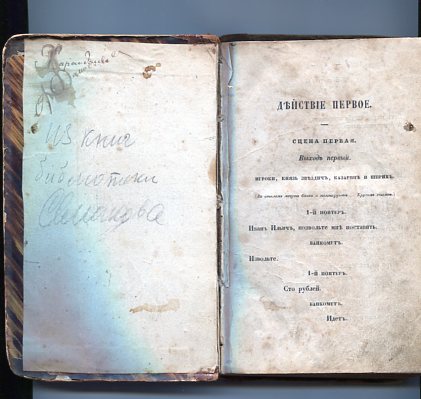 Из книг
библиотеки
ДѢЙСТВІЕ ПЕРВОЕ.
СЦЕНА ПЕРВАЯ.
Выходъ первый.
ИГРОКИ, КНЯЗЬ ЗВѢЗДИЧЪ, КАЗАРИНЪ И ШПРИХЪ.
1-й понтеръ.
Иванъ Ильичъ, позвольте мнѣ поставить.
БАНКОМЕТЪ.
Извольте.
1-й понтеръ.
Сто рублей.
БАНКОМЕТЪ.
Идетъ.